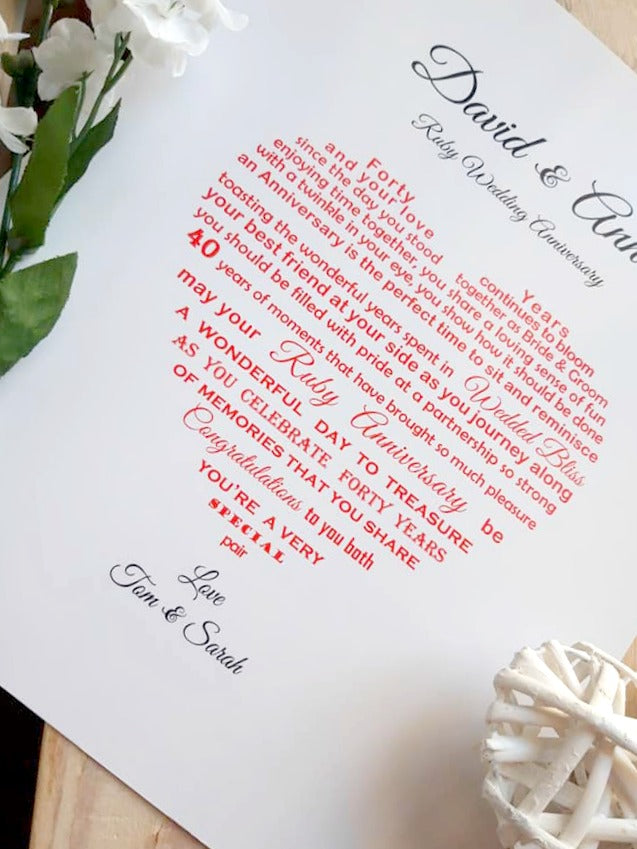 David & Ann
Ruby Wedding Anniversary
Forty Years
and your love continues to bloom
since the day you stood together as Bride & Groom
enjoying time together, you share a loving sense of fun
with a twinkle in your eye, you show how it should be done
an Anniversary is the perfect time to sit and reminisce
toasting the wonderful years spent in Wedded Bliss
your best friend at your side as you journey along
you should be filled with pride at a partnership so strong
40 years of moments that have brought so much pleasure
may your Ruby Anniversary be
A WONDERFUL DAY TO TREASURE
AS YOU CELEBRATE FORTY YEARS
OF MEMORIES THAT YOU SHARE
Congratulations to you both
YOU'RE A VERY
SPECIAL
pair
Love
Tom & Sarah